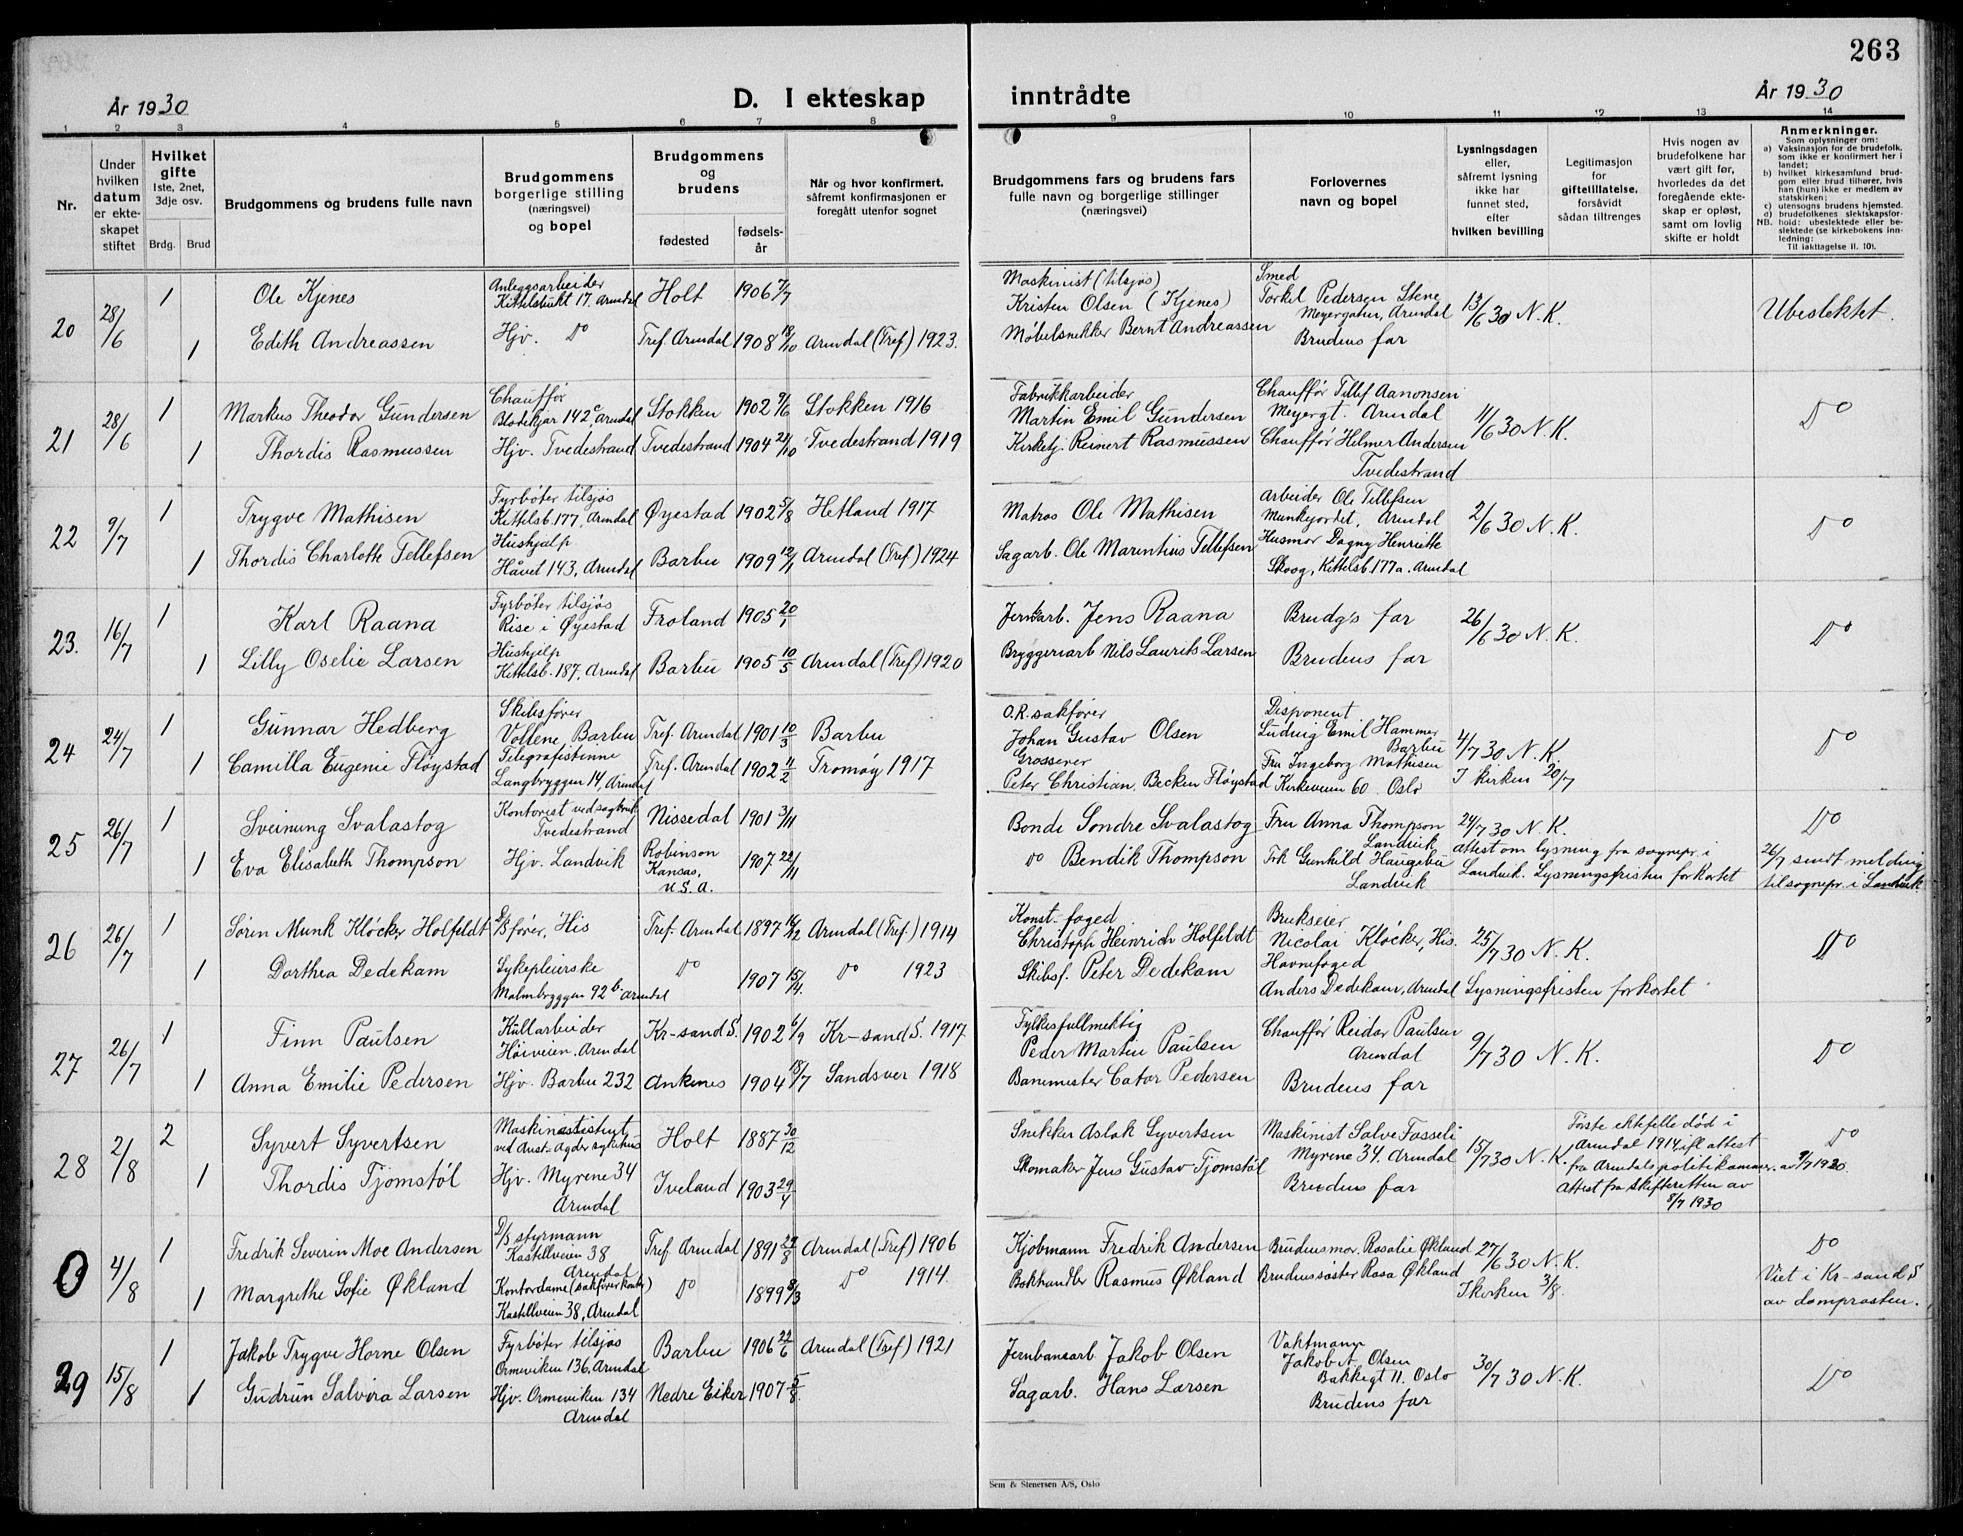 263
År 1930
D. I ekteskap inntrådte
År 1930
1 2 3 4 5 6 7 8 9 10 11 12 13 14
Nr.
Under hvilken datum er ekteskapet stiftet
Hvilket gifte 1ste, 2net, 3dje osv.
Brdg. Brud
Brudgommens og brudens fulle navn
Brudgommens borgerlige stilling (næringsvei) og bopel
Brudgommens og brudens
fødested
fødselsår
Når og hvor konfirmert, såfremt konfirmasjonen er foregått utenfor sognet
Brudgommens fars og brudens fars fulle navn og borgerlige stillinger (næringsvei)
Forlovernes navn og bopel
Lysningsdagen eller, såfremt lysning ikke har funnet sted, efter hvilken bevilling
Legitimasjon for giftetillatelse, forsåvidt sådan tiltrenges
Hvis nogen av brudefolkene har vært gift før, hvorledes da det foregående ekteskap er opløst, samt om lovlig skifte er holdt
Anmerkninger.
Som oplysninger om:
a) Vaksinasjon for de brudefolk, som ikke er konfirmert her i landet;
b) hvilket kirkesamfund brudgom eller brud tilhører, hvis han (hun) ikke er medlem av statskirken;
c) utensogns brudens hjemsted.
d) brudefolkenes slektskapsforhold: ubeslektede eller beslektede (se kirkebokens innledning:
NB.
Til iakttagelse II. 10).
20 28/6 1 Ole Kjenes Anleggsarbeider Kittelsbukt 17. Arendal Holt 1906 7/7 Maskinist (tilsjøs) Kristen Olsen (Kjenes) Smed Torkel Pedersen Stene Meyergaten, Arendal 13/6 30 N.K. Ubeslektet.
1 Edith Andreassen Hjv. Do Tref. Arendal 1908 18/10 Arendal (Tref) 1923. Møbelsnekker Bernt Andreassen Brudens far
21 28/6 1 Markus Theodor Gundersen Chauffør Blødekjær 142c Arendal Stokken 1902 9/6 Stokken 1916 Fabrikkarbeider Martin Emil Gundersen Chauffør Tellef Aanonsen Meyergt. Arendal 11/6 30 N.K. Do
1 Thordis Rasmussen Hjv. Tvedestrand Tvedestrand 1904 21/10 Tvedestrand 1919 Kirketj. Reinert Rasmussen Chauffør Helmer Andersen Tvedestrand
22 9/7 1 Trygve Mathisen Fyrbøter tilsjøs Kittelsb. 177, Arendal Øyestad 1902 5/8 Hetland 1917 Matros Ole Mathisen Arbeider Ole Tellefsen Munkejordet, Arendal 2/6 30 N.K. Do
1 Thordis Charlotte Tellefsen Hushjelp Håvet 143, Arendal Barbu 1909 12/1 Arendal (Tref) 1924 Sagarb. Ole Marentius Tellefsen Husmor Dagny Henriette Skoog, Kittelsb. 177a. Arendal
23. 16/7 1 Karl Raana Fyrbøter tilsjøs Rise i Øyestad Froland 1905 20/1 Jernarb. Jens Raana Brudg's far 26/6 30 N.K. Do
1 Lilly Oselie Larsen Hushjelp Kittelsb. 187, Arendal Barbu 1905 10/5 Arendal (Tref) 1920 Bryggeriarb Nils Laurits Larsen Brudens far
24 24/7 1 Gunnar Hedberg Skibsfører Vollene, Barbu Tref. Arendal 1901 10/3 Barbu O.R. sakfører Johan Gustav Olsen Disponent Ludvig Emil Hammer Barbu 4/7 30 N.K. Do
1 Camilla Eugenie Fløystad Telegrafistinne Langbryggen 14, Arendal Tref. Arendal 1902 11/2 Tromøy 1917 Grosserer Peter Christian Becken Fløystad Fru Ingeborg Mathisen Kirkeveien 60. Oslo I kirken 20/7
25 26/7 1 Sveinung Svalastog Kontorist ved sagbruk Tvedestrand Nissedal 1901 3/11 Bonde Sondre Svalastog Fru Anna Thompson Landvik 24/7 30 N.K. Do
1 Eva Elisabeth Thompson Hjv. Landvik Robinson Kansas, U.S.A. 1907 22/11 Do Bendik Thompson Frk Gunhild Haugebu Landvik Attest om lysning fra sognepr. i Landvik. Lysningsfristen forkortet 26/7 sendt melding til sognepr. i Landvik
26 26/7 1 Søren Munk Kløcker Holfeldt D/S fører, His Tref. Arendal 1897 16/12 Arendal (Tref.) 1914 Konst. foged Christoph Heinrich Holfeldt Brukseier Nicolai Kløcker, His. 25/7 30 N.K. Do
1 Dorthea Dedekam Sykepleierske Malmbryggen 92b. Arendal Do 1907 15/4. Do 1923 Skibsf. Peter Dedekam Havnefoged Anders Dedekam, Arendal Lysningsfristen forkortet
27 26/7 1 Finn Paulsen Kullarbeider Høiveien. Arendal Kr-sand S. 1902 6/9 Kr-sand S. 1917 Fylkesfullmektig Peder Martin Paulsen Chauffør Reidar Paulsen Arendal 9/7 30 N.K. Do
1 Anna Emilie Pedersen Hjv. Barbu 232 Ankenes 1904 18/7 Sandsver 1918 Banemester Cator Pedersen Brudens far
28 2/8 2 Syvert Syvertsen Maskinassistent ved Aust-Agder sykehus Holt 1887 30/12 Snekker Aslak Syvertsen Maskinist Salve Fosseli Myrene 34. Arendal 15/7 30 N.K. Første ektefelle død i Arendal 1914, ifl attest fra Arendals politikammer. av 9/7 1930. Attest fra skifteretten av 8/7 1930 Do
1 Thordis Tjomstøl Hjv. Myrene 34 Arendal Iveland 1903 29/4 Skomaker Jens Gustav Tjomstøl Brudens far
0 4/8 1 Fredrik Severin Moe Andersen D/S styrmann Kastellveien 38 Arendal Tref. Arendal 1891 29/8 Arendal (Tref) 1906 Kjøbmann Fredrik Andersen Brudens mor. Rosalie Økland 27/6 30 N.K. Do
1 Margrethe Sofie Økland Kontordame (sakførerkontor) Kastellveien 38, Arendal Do 1899 8/3 Do 1914. Bokhandler Rasmus Økland Brudens søster Rosa Økland I kirken 3/8. Viet i Kr-sand S av domprosten.
29 15/8 1 Jakob Trygve Horne Olsen Fyrbøter tilsjøs Ormeviken 136, Arendal Barbu 1906 22/6 Arendal (Tref) 1921 Jernbanearb. Jakob Olsen Vaktmann Jakob A. Olsen Bakkegt 11. Oslo 30/7 30 N.K. Do
1 Gudrun Salvora Larsen Hjv. Ormeviken 134 Arendal Nedre Eiker 1907 5/8. Sagarb. Hans Larsen Brudens far
Sem & Stenersen A/S, Oslo